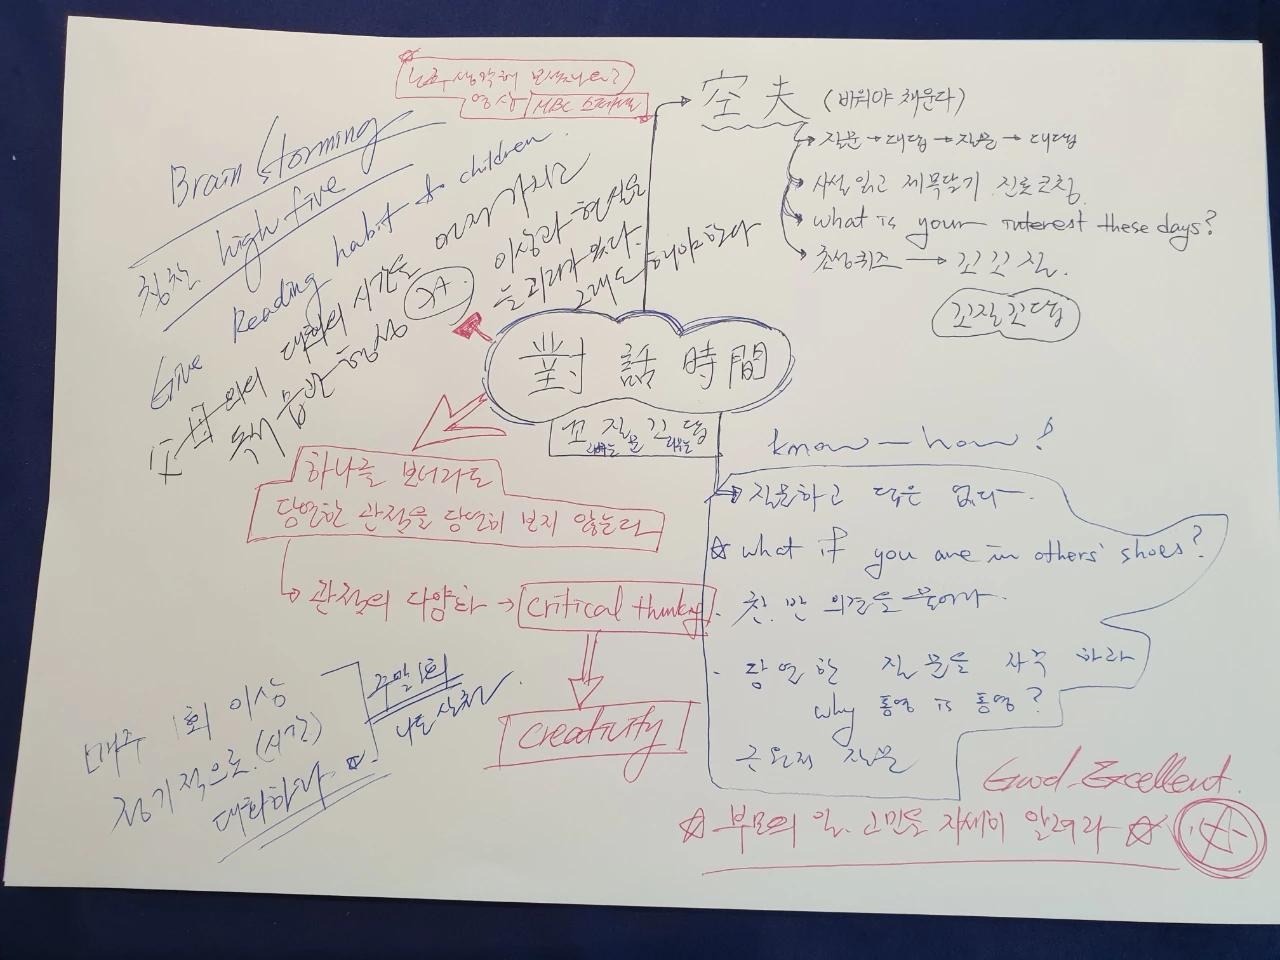 생각해 보셨나요?
영상 MBC 스페셜
空夫 (비워야 채운다)
질문 → 대답 → 질문 → 대답
사설 읽고 제목달기 진로코칭
what is your interest these days?
초성퀴즈 → 꼬꼬질.
꼬질꼬답
Brain Storming
칭찬 high five
Give Reading habit to children
父母와의 대화의 시간은 먼저 가지고
독서 습관 형성
이상과 현실은
늘 괴리가 있다.
그래도 해야 한다
對話時間
꼬질꼬답
하나를 보더라도
당연한 관점을 당연히 보지 않는다
관점의 다양화 → critical thinking
creativity
know-how!
질문하고 답은 없다.
☆ what if you are in others' shoes?
· 찬.반 의견을 물어라.
· 당연한 질문을 자주 하라
why 통영 is 통영?
근원적 질문
매주 1회 이상
정기적으로 (시간)
대화하라 ☆
주말 1회
나도 실천.
Good-Excellent.
☆ 부모의 일, 고민을 자세히 알려라 ☆